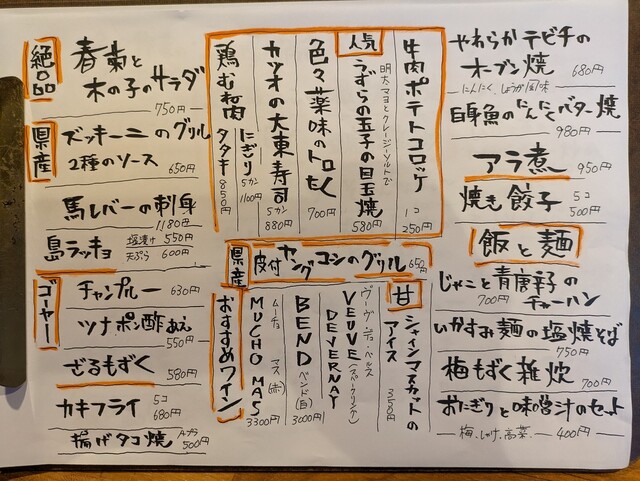 絶品
春菊と
木の子のサラダ
750円
県産
ズッキーニのグリル
2種のソース 650円
馬レバーの刺身
1180円
島ラッキョ 塩漬け 550円
天ぷら 600円
ゴーヤー
チャンプルー 630円
ツナポン酢あえ
550円
ざるもずく 580円
カキフライ 5コ
680円
揚げタコ焼
500円
人気
牛肉ポテトコロッケ
1コ
250円
うずらの玉子の目玉焼
明太マヨとクレージーソルトで
580円
色々薬味のトロたく
700円
カツオの大東寿司
5カン
880円
にぎり 5カン 1100円
鶏むね肉
タタキ 850円
県産
皮付ヤングコーンのグリル 650円
おすすめワイン
MUCHO MAS (赤)
ムーチョ マス
3300円
BEND ベンド(白)
3000円
VEUVE (スパークリング)
DEVERNAY
ヴーヴ・デュ・ベルネ
甘
シャインマスカットの
アイス 350円
やわらかテビチの
オーブン焼 680円
にんにく、しょうが風味
白身魚のにんにくバター焼
980円
アラ煮 950円
焼き餃子 5コ
500円
飯と麺
じゃこと青唐辛子の
700円 チャーハン
いかすみ麺の塩焼そば
750円
梅もずく雑炊 700円
おにぎりと味噌汁のセット
梅、しゃけ、高菜 400円